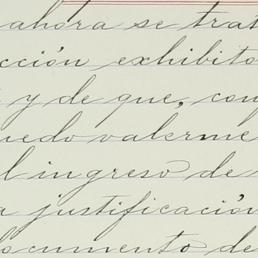 ahora se trat
cción exhibito
y de que, con
uedo valerme
l ingreso de
a justificación
documento de